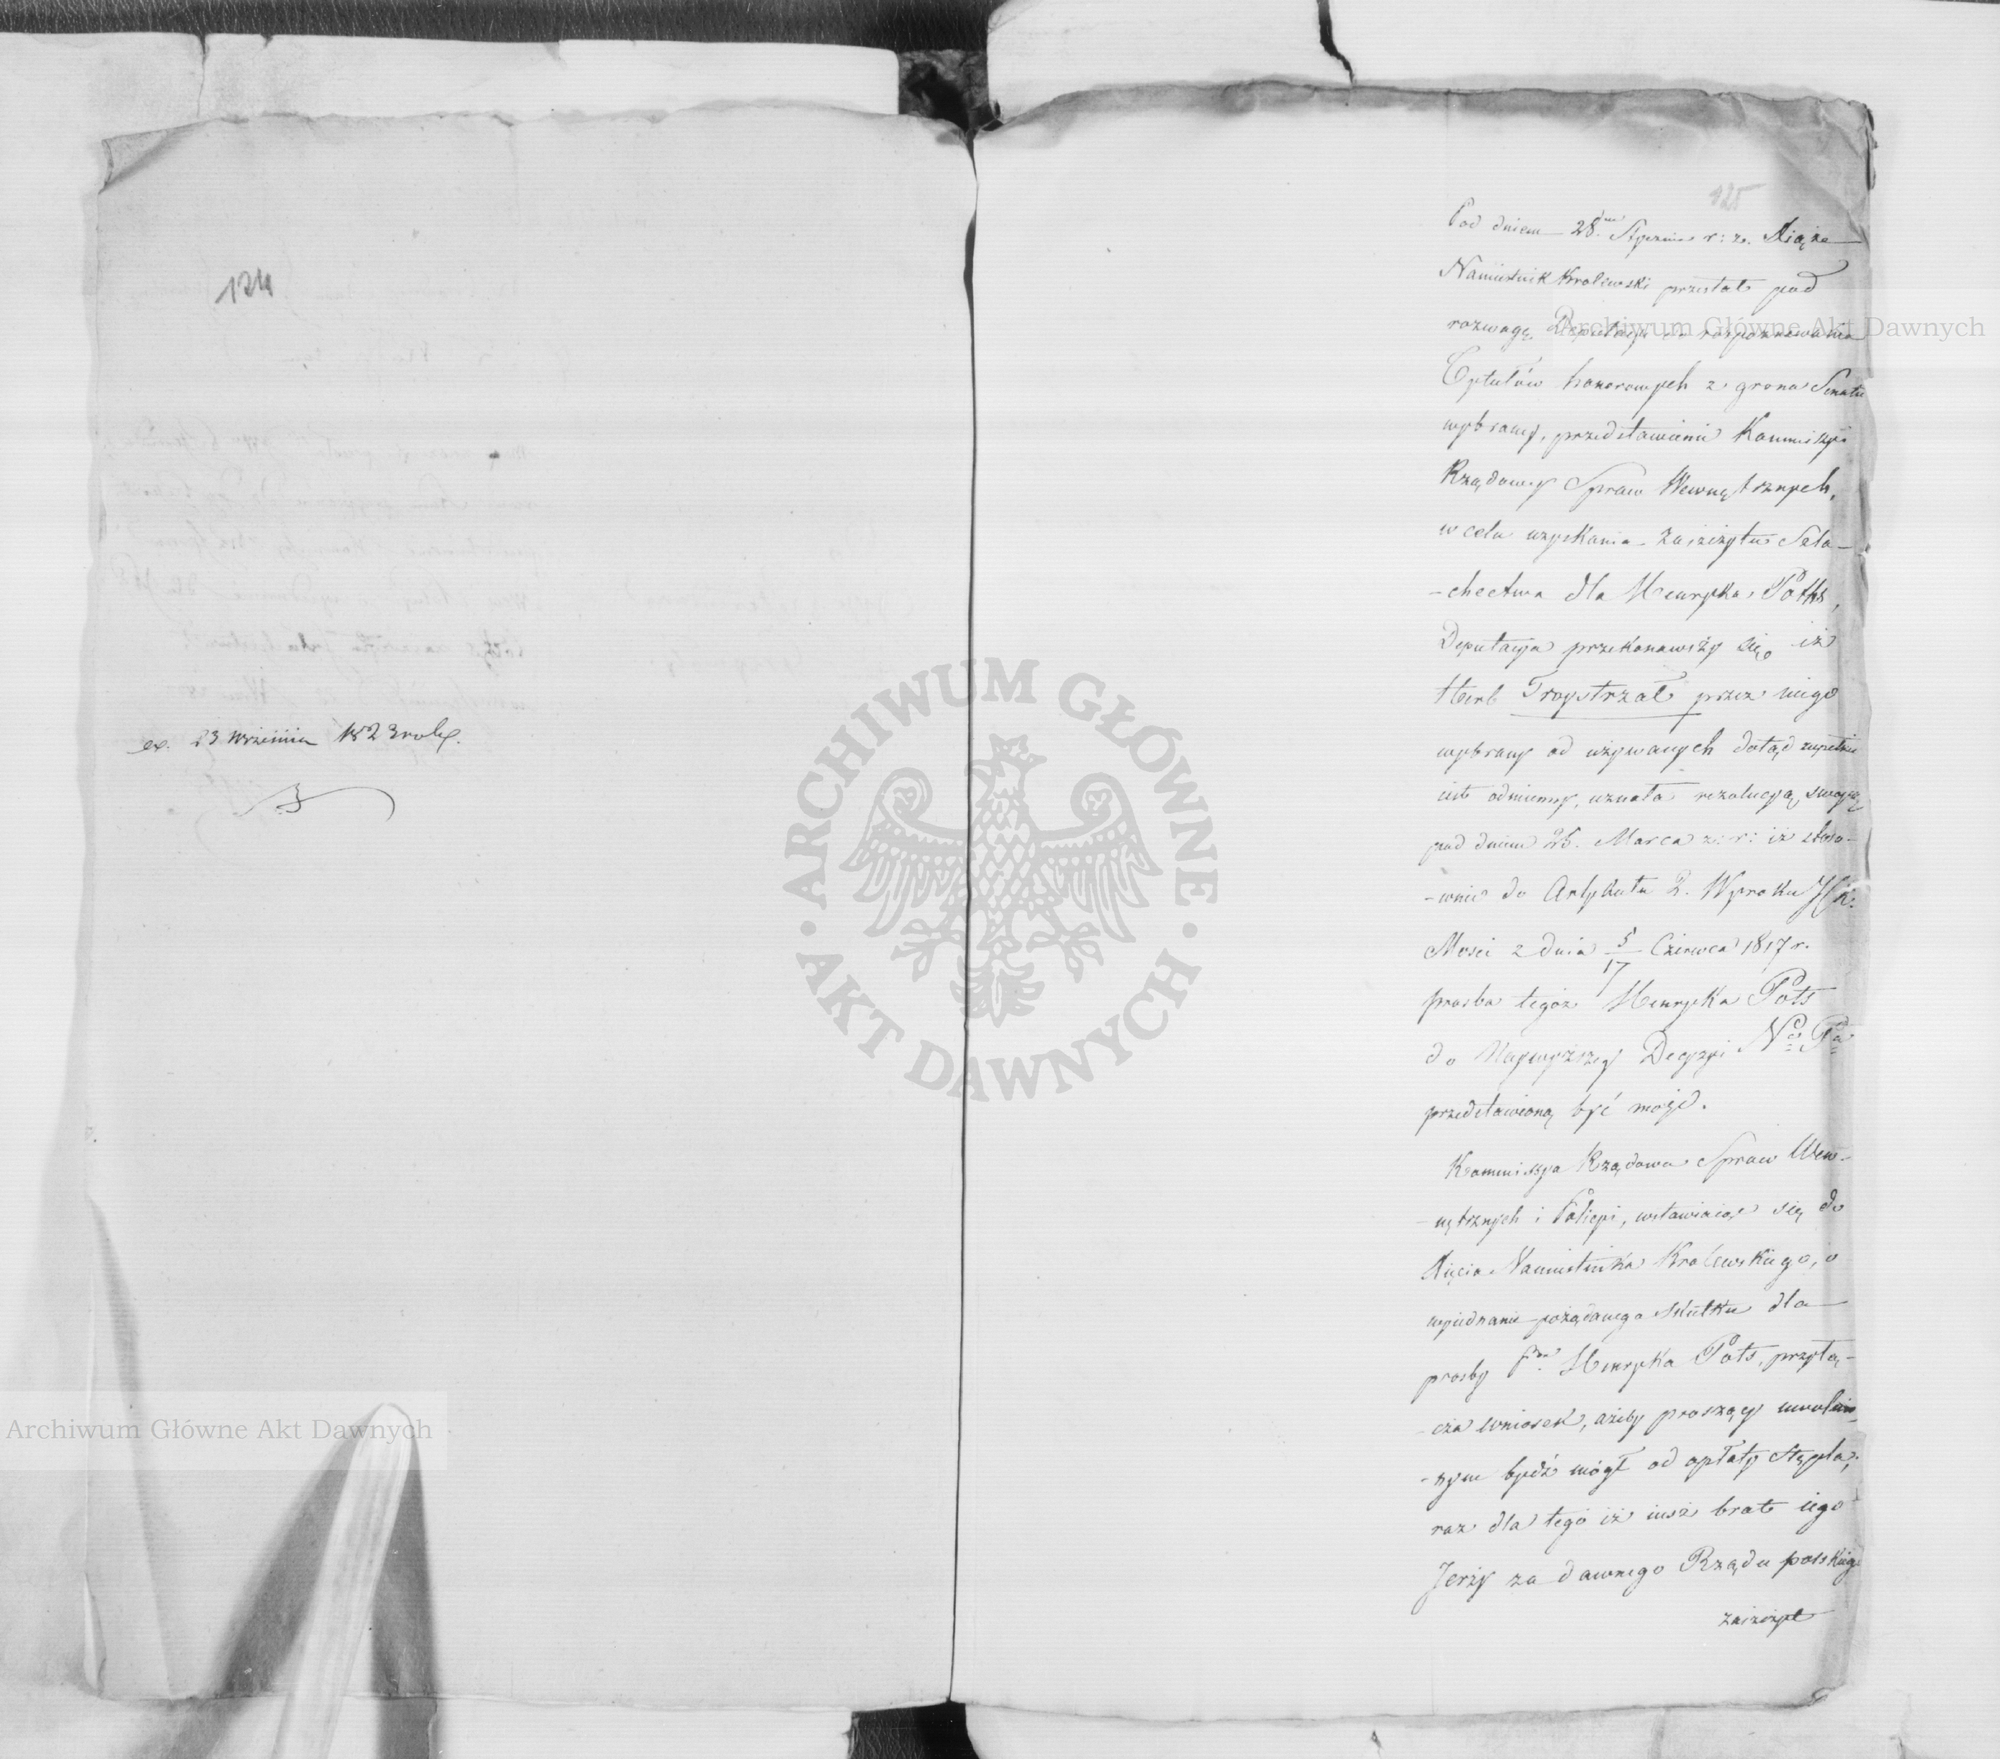 124
ex. 23 września 1823 roku.
125
Pod dniem 28. Stycznia r: z. Xiąże
Namiestnik Krolewski przesłał pod
rozwagę Deputacyi do rospoznawania
Tytułów honorowych z grona Senatu
wybraney, przedstawienie Kommissyi
Rządowey Spraw Wewnętrznych,
w celu uzyskania Zaszczytu Szla-
-chectwa dla Henryka Potts,
Deputacya przekonawszy się iż
Herb Troystrzał przez niego
wybrany od używanych dotąd zupełnie
iest odmienny, uznała rezolucyą swoią
pod dniem 25. Marca z: r: iż stoso-
-wnie do Artykułu 2. Wyroku JK.
Mości z dnia 5/17 Czerwca 1817 r.
prosba tegoż Henryka Pots
do Naywyższey Decyzyi N. P.
przedstawioną być może.
Kommissya Rządowa Spraw Wew-
-nętrznych i Policyi, wstawiaiąc się do
Xięcia Namiestnika Krolewskiego, o
wyiednanie pożądanego skutku dla
prosby Henryka Pots, przyłą-
-cza wniosek, ażeby proszący uwolnio-
-nym bydź mógł od opłaty stępla,
raz dla tego iż iusz brat iego
Jerzy za dawnego Rządu polskiego
zaszczyt
Archiwum Główne Akt Dawnych
Archiwum Główne Akt Dawnych
ARCHIWUM GŁÓWNE AKT DAWNYCH